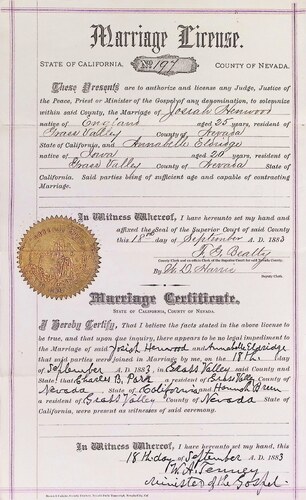 Marriage License.
STATE OF CALIFORNIA, No. 197 COUNTY OF NEVADA.
These Presents are to authorize and license any Judge, Justice of
the Peace, Priest or Minister of the Gospel of any denomination, to solemnize
within said County, the Marriage of Josiah Henwood
native of England aged 25 years, resident of
Grass Valley County of Nevada
State of California, and Annabelle Eldridge
native of Iowa aged 20 years, resident of
Grass Valley County of Nevada State of
California. Said parties being of sufficient age and capable of contracting
Marriage.
In Witness Whereof, I have hereunto set my hand and
affixed the Seal of the Superior Court of said County
this 18th day of September A. D. 1883
F. G. Beatty
County Clerk and ex-officio Clerk of the Superior Court for said County.
By W. D. Harris
Deputy Clerk.
Marriage Certificate.
STATE OF CALIFORNIA, COUNTY OF NEVADA.
I Hereby Certify, That I believe the facts stated in the above license
to be true, and that upon due inquiry, there appears to be no legal impediment to
the Marriage of said Josiah Henwood and Annabelle Eldridge
that said parties were joined in Marriage by me, on the 18th. day
of September A. D. 1883, in Grass Valley said County
and State; that Charles B. Park a resident of Grass Valley
Nevada State of California and Hannah
a resident of Grass Valley County of Nevada State of
California, were present as witnesses of said ceremony.
In Witness Whereof, I have hereunto set my hand, this
18th day of September A. D. 1883
W. H. Tenney
Minister of the Gospel.